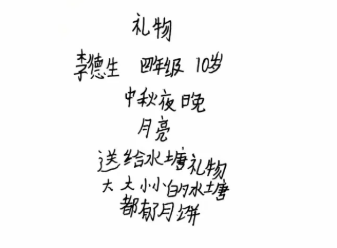 礼物
李德生 四年级 10岁
中秋夜晚
月亮
送给水塘礼物
大大小小的水塘
都有月饼